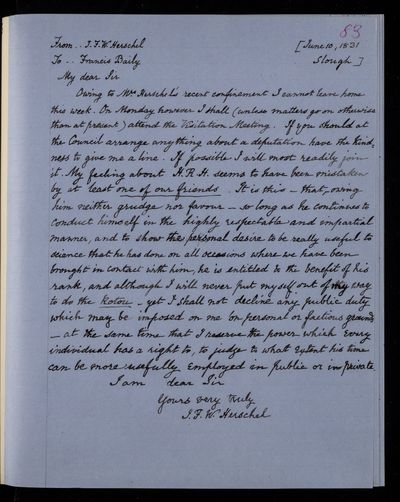 83
From .. J.F.W. Herschel [June 10, 1831
To .. Francis Baily Slough]
My dear Sir
Owing to Mrs Herschel's recent confinement I cannot leave home
this week. On Monday however I shall (unless matters go on otherwise
than at present) attend the Visitation Meeting. If you should at
the Council arrange anything about a deputation have the kind-
ness to give me a line. If possible I will most readily join
it. My feeling about H.R.H. seems to have been mistaken
by at least one of our friends. It is this - that, owing
him neither grudge nor favour - so long as he continues to
conduct himself in the highly respectable and impartial
manner, and to show the personal desire to be really useful to
science that he has done on all occasions where we have been
brought in contact with him, he is entitled to the benefit of his
rank, and although I will never put myself out of my way
to do the Kotou - yet I shall not decline any public duty
which may be imposed on me on personal or factious grounds
- at the same time that I reserve the power which every
individual has a right to, to judge to what extent his time
can be more usefully employed in public or in private
I am dear Sir
Yours very truly
J.F.W. Herschel